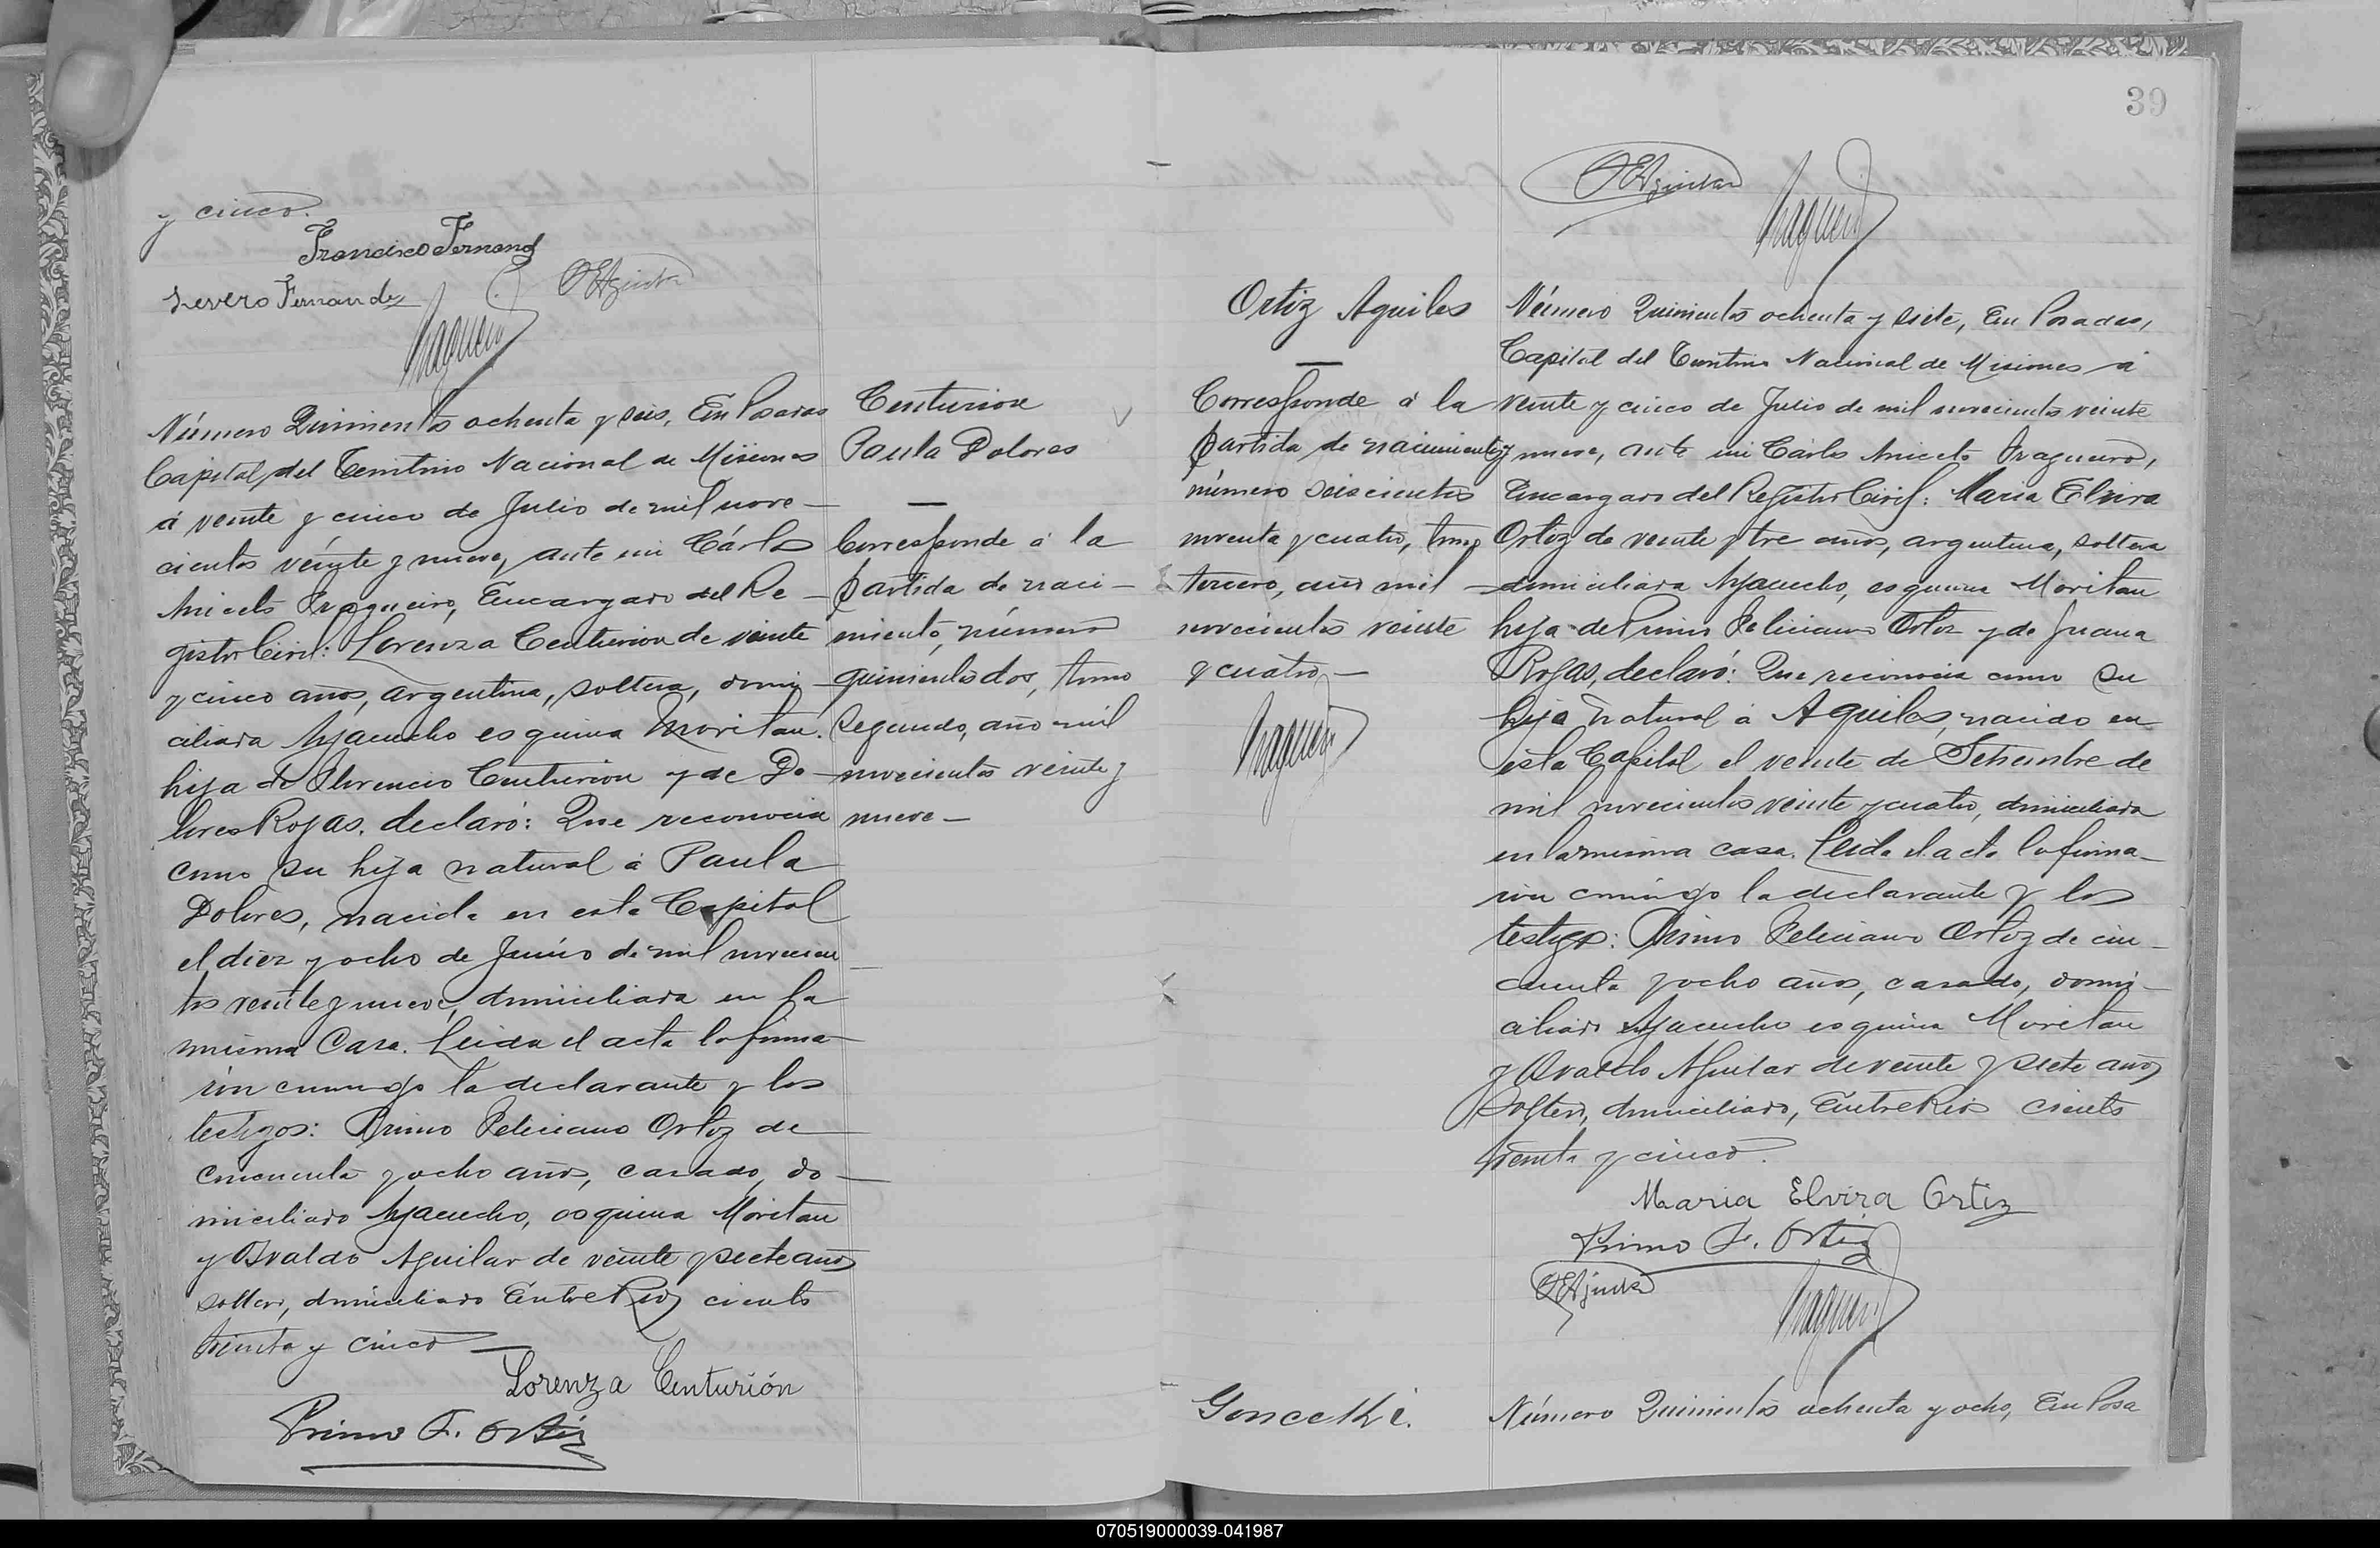 y cinco.
Francisco Fernand
Severo Fernandez
Número Quinientos ochenta y seis, En Posadas
Capital del Territorio Nacional de Misiones
á veinte y cinco de Julio de mil nove-
cientos veinte y nueve, ante mi Cárlos
Aniceto Fragueiro, Encargado del Re-
gistro Civil: Lorenza Centurion de veinte
y cinco años, argentina, soltera, domi-
ciliada Ayacucho esquina Moritan.
hija de Florencio Centurion y de Do-
lores Rojas, declaró: Que reconocia
como su hija natural á Paula
Dolores, nacida en esta Capital
el diez y ocho de Junio de mil novecien-
tos veinte y nueve, domiciliada en la
misma Casa. Leida el acta la firma-
ron conmigo la declarante y los
testigos: Primo Feliciano Ortiz de
cincuenta y ocho años, casado, do-
miciliado Ayacucho, esquina Moritan
y Osvaldo Aguilar de veinte y siete años
soltero, domiciliado Entre Rios ciento
treinta y cinco
Lorenza Centurión
Primo F. Ortiz
Centurion
Paula Dolores
Corresponde á la
partida de naci-
miento, número
quinientos dos, tomo
segundo, año mil
novecientos veinte y
nueve-
39
Ortiz Aquiles
Corresponde á la
partida de nacimiento,
número seiscientos
noventa y cuatro, tomo
tercero, año mil
novecientos veinte
y cuatro-
Número Quinientos ochenta y siete, En Posadas,
Capital del Territorio Nacional de Misiones á
veinte y cinco de Julio de mil novecientos veinte
y nueve, ante mi Cárlos Aniceto Fragueiro,
Encargado del Registro Civil: Maria Elvira
Ortiz de veinte y tre años, argentina, soltera
domiciliada Ayacucho, esquina Moritan
hija de Primo Feliciano Ortiz y de Juana
Rojas, declaró: Que reconocia como su
hijo natural á Aquiles, nacido en
esta Capital el veinte de Setiembre de
mil novecientos veinte y cuatro, domiciliada
en la misma casa. Leida el acta la firma-
ron conmigo la declarante y los
testigos: Primo Feliciano Ortiz de cin-
cuenta y ocho años, casado, domi-
ciliado Ayacucho esquina Moritan
y Osvaldo Aguilar de veinte y siete años
soltero, domiciliado, Entre Rios ciento
treinta y cinco.
Maria Elvira Ortiz
Primo F. Ortiz
Número Quinientos ochenta y ocho, En Posa
070519000039-041987